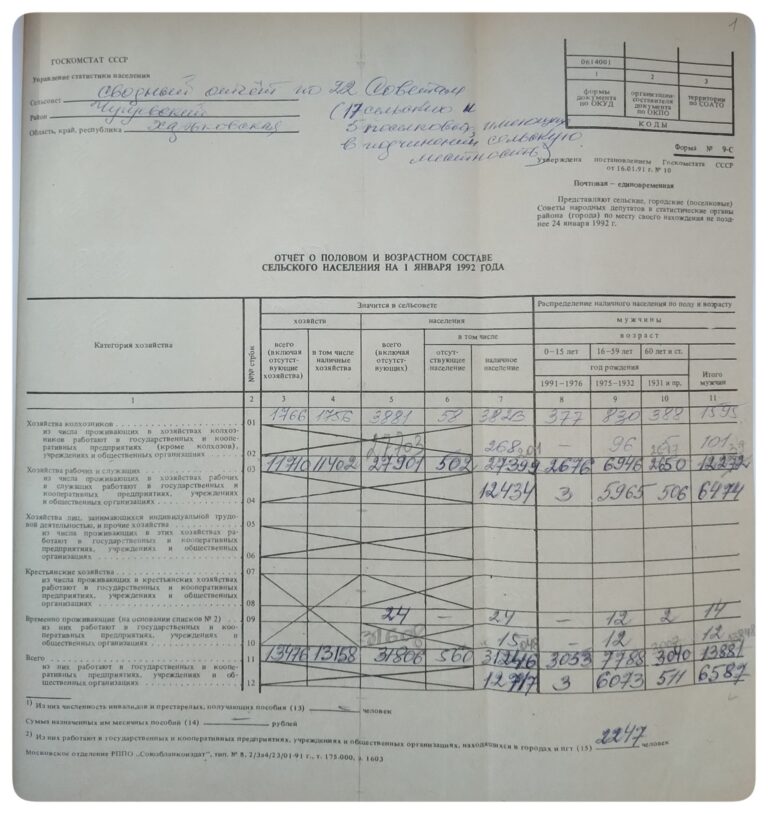 1
ГОСКОМСТАТ СССР
Управление статистики населения
Сводный отчёт по 22 Советам
Сельсовет
(17 сельских и
Район Чугуевский
5 поселковых, имеющих
Область, край, республика Харьковская
в подчинении сельскую
местность)
0614001
1 2 3
формы документа по ОКУД
организации-составителя документа по ОКПО
территории по СОАТО
КОДЫ
Форма № 9-С
Утверждена постановлением Госкомстата СССР
от 16.01.91 г. № 10
Почтовая – единовременная
Представляют сельские, городские (поселковые)
Советы народных депутатов в статистические органы
района (города) по месту своего нахождения не позд-
нее 24 января 1992 г.
ОТЧЁТ О ПОЛОВОМ И ВОЗРАСТНОМ СОСТАВЕ
СЕЛЬСКОГО НАСЕЛЕНИЯ НА 1 ЯНВАРЯ 1992 ГОДА
Категория хозяйства
№№ строк
Значится в сельсовете
Распределение наличного населения по полу и возрасту
хозяйств
населения
мужчины
всего (включая отсутствующие хозяйства)
в том числе наличные хозяйства
всего (включая отсутствующих)
в том числе
отсутствующее население
наличное население
возраст
0–15 лет 16–59 лет 60 лет и ст.
год рождения
1991–1976 1975–1932 1931 и пр.
Итого мужчин
1 2 3 4 5 6 7 8 9 10 11
Хозяйства колхозников 01 1766 1756 3881 58 3823 377 830 388 1595
из числа проживающих в хозяйствах колхоз-
ников работают в государственных и коопе-
ративных предприятиях (кроме колхозов),
учреждениях и общественных организациях 02 268 – 96 5 101
Хозяйства рабочих и служащих 03 11710 11402 27901 502 27399 2676 6946 2650 12272
из числа проживающих в хозяйствах рабочих
и служащих работают в государственных и
кооперативных предприятиях, учреждениях
и общественных организациях 04 12434 3 5965 506 6474
Хозяйства лиц, занимающихся индивидуальной трудо-
вой деятельностью, и прочие хозяйства 05
из числа проживающих в этих хозяйствах ра-
ботают в государственных и кооперативных
предприятиях, учреждениях и общественных
организациях 06
Крестьянские хозяйства 07
из числа проживающих в крестьянских хозяйствах
работают в государственных и кооперативных
предприятиях, учреждениях и общественных
организациях 08
Временно проживающие (на основании списков № 2) 09 24 – 24 – 12 2 14
из них работают в государственных и кооп-
перативных предприятиях, учреждениях и
общественных организациях 10 15 – 12 12
Всего 11 13476 13158 31806 560 31246 3053 7788 3040 13881
из них работают в государственных и коопе-
ративных предприятиях, учреждениях и об-
щественных организациях 12 12717 3 6073 511 6587
1) Из них численность инвалидов и престарелых, получающих пособия (13) — человек
Сумма назначенных им месячных пособий (14) — рублей
2) Из них работают в государственных и кооперативных предприятиях, учреждениях и общественных организациях, находящихся в городах и пгт (15) 2247 человек
Московское отделение РППО „Союзбланкоиздат", тип. № 8, 2/3а4/23/01-91 г., т. 175.000, з. 1603